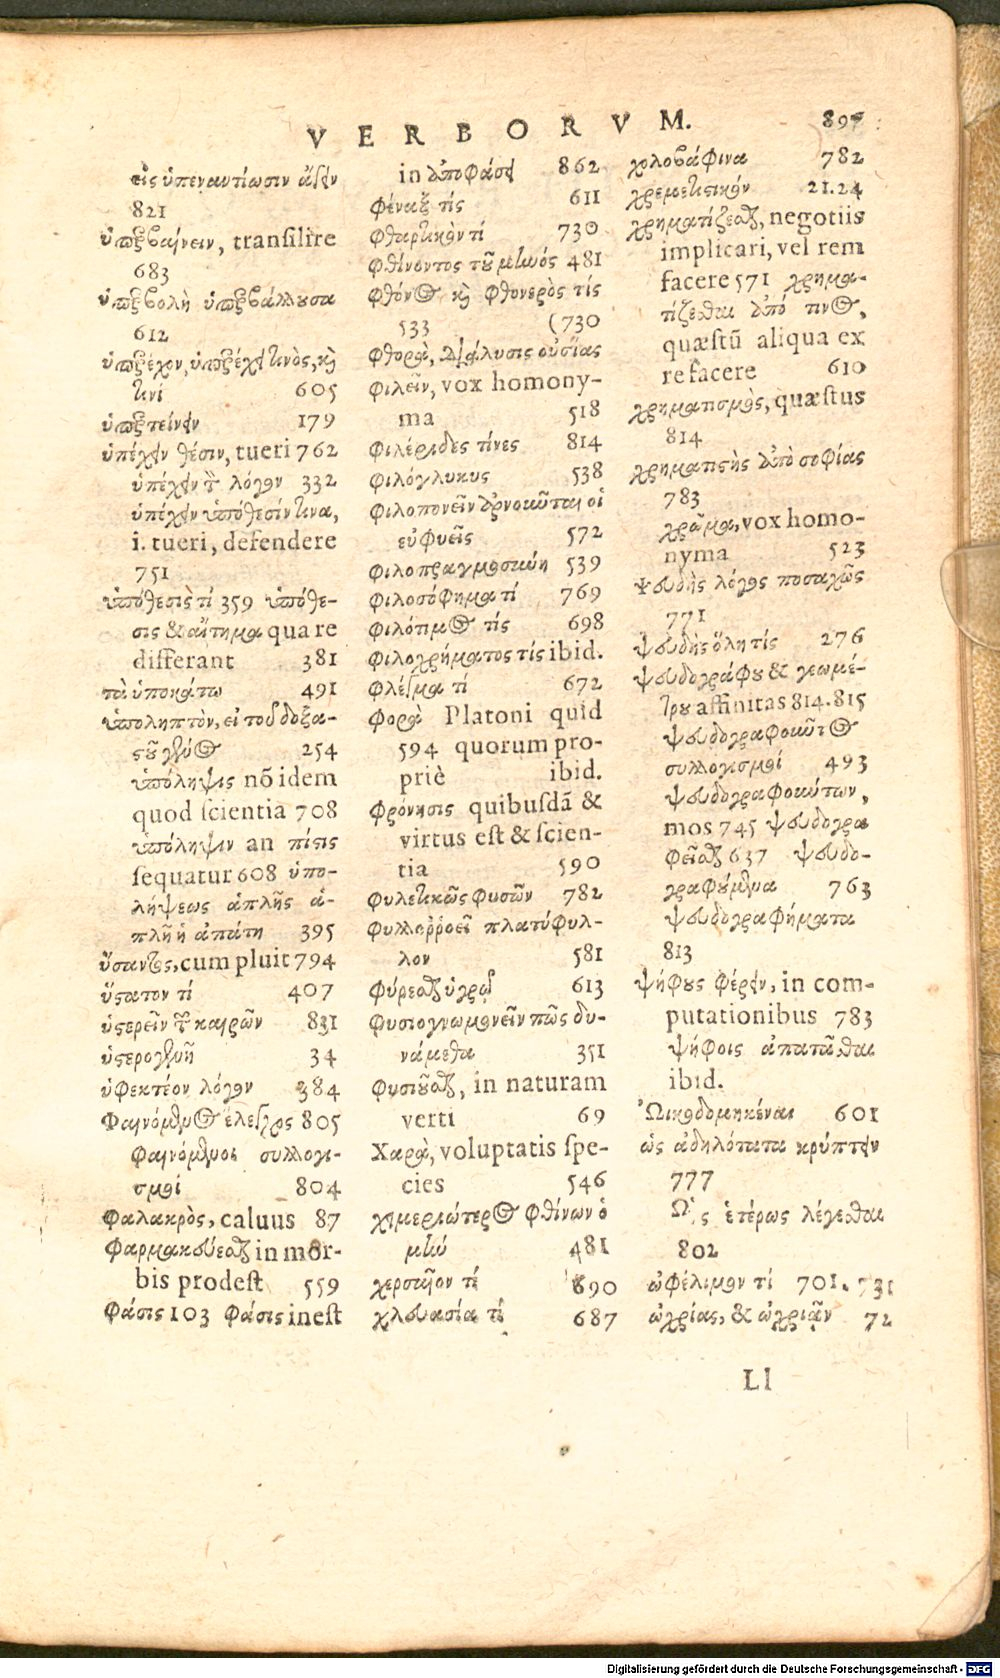 VERBORVM. 897
εἰς ὑπεναντίωσιν ἄγειν
821
ὑπερβαίνειν, transilire
683
ὑπερβολὴ ὑπερβάλλουσα
612
ὑπερέχον, ὑπερέχειν τινὸς, κὶ
τινί 605
ὑπερτείνειν 179
ὑπέχειν θέσιν, tueri 762
ὑπέχειν τ λόγον 332
ὑπέχειν ὑπόθεσίν τινα,
i. tueri, defendere
751
ὑπόθεσις τί 359 ὑπόθε-
σις & αἴτημα qua re
differant 381
τὰ ὑποκάτω 491
ὑποληπτὸν, εἰ τοῦ δοξα-
στοῦ γένος 254
ὑπόληψις nō idem
quod scientia 708
ὑπόληψιν an πίστις
sequatur 608 ὑπο-
λήψεως ἁπλῆς ἁ-
πλῆ ἡ ἀπάτη 395
ὕσαντος, cum pluit 794
ὕστατον τί 407
ὑστερεῖν τ καιρῶν 831
ὑστερογενῆ 34
ὑφεκτέον λόγον 384
Φαινόμενος ἔλεγχος 805
Φαινόμενοι συλλογι-
σμοί 804
Φαλακρὸς, caluus 87
Φαρμακεύεσθαι in mor-
bis prodest 559
Φάσις 103 Φάσις inest
in ἀποφάσει 862
Φέναξ τίς 611
Φθαρτικὸν τί 730
Φθίνοντος τοῦ μηνός 481
Φθόνος κὶ φθονερὸς τίς
533 (730
Φθορὰ, διάλυσις οὐσίας
Φιλεῖν, vox homony-
ma 518
Φιλέριδες τίνες 814
Φιλόγλυκυς 538
Φιλοπονεῖν ἀρνοῦνται οἱ
εὐφυεῖς 572
Φιλοπραγμοσύνη 539
Φιλοσόφημα τί 769
Φιλότιμος τίς 698
Φιλοχρήματος τίς ibid.
Φλέγμα τί 672
Φορὰ Platoni quid
594 quorum pro-
priè ibid.
Φρόνησις quibusdā &
virtus est & scien-
tia 590
Φυλετικῶς φυσῶν 782
Φυλλορροεῖ πλατύφυλ-
λον 581
Φύρεσθαι ὑγρῷ 613
Φυσιογνωμονεῖν πῶς δυ-
νάμεθα 351
Φυσιοῦσθαι, in naturam
verti 69
Χαρὰ, voluptatis spe-
cies 546
χιμεριώτερος φθίνων ὁ
μὴν 481
χερσαῖον τί 690
χλευασία τί 687
χολοβάφινα 782
χρεμετιστικόν 21.24
χρηματίζεσθαι, negotiis
implicari, vel rem
facere 571 χρημα-
τίζεσθαι ἀπό τινος,
quæstū aliqua ex
re facere 610
χρηματισμὸς, quæstus
814
χρηματιστὴς ἀπὸ σοφίας
783
χρῶμα, vox homo-
nyma 523
Ψευδὴς λόγος ποσαχῶς
771
ψευδὴς ὅλη τίς 276
ψευδογράφου & γεωμέ-
τρου affinitas 814.815
ψευδογραφοῦντος
συλλογισμοί 493
ψευδογραφούντων,
mos 745 ψευδογρα
φεῖσθαι 637 ψευδο-
γραφούμενα 763
ψευδογραφήματα
813
ψήφους φέρειν, in com-
putationibus 783
ψήφοις ἀπατᾶσθαι
ibid.
Ὠικοδομηκέναι 601
ὡς ἀδηλότατα κρύπτειν
777
Ὡς ἑτέρως λέγεσθαι
802
ὠφέλιμον τί 701. 731
ὠχρίας, & ὠχριᾷν 72
Ll
Digitalisierung gefördert durch die Deutsche Forschungsgemeinschaft - DFG